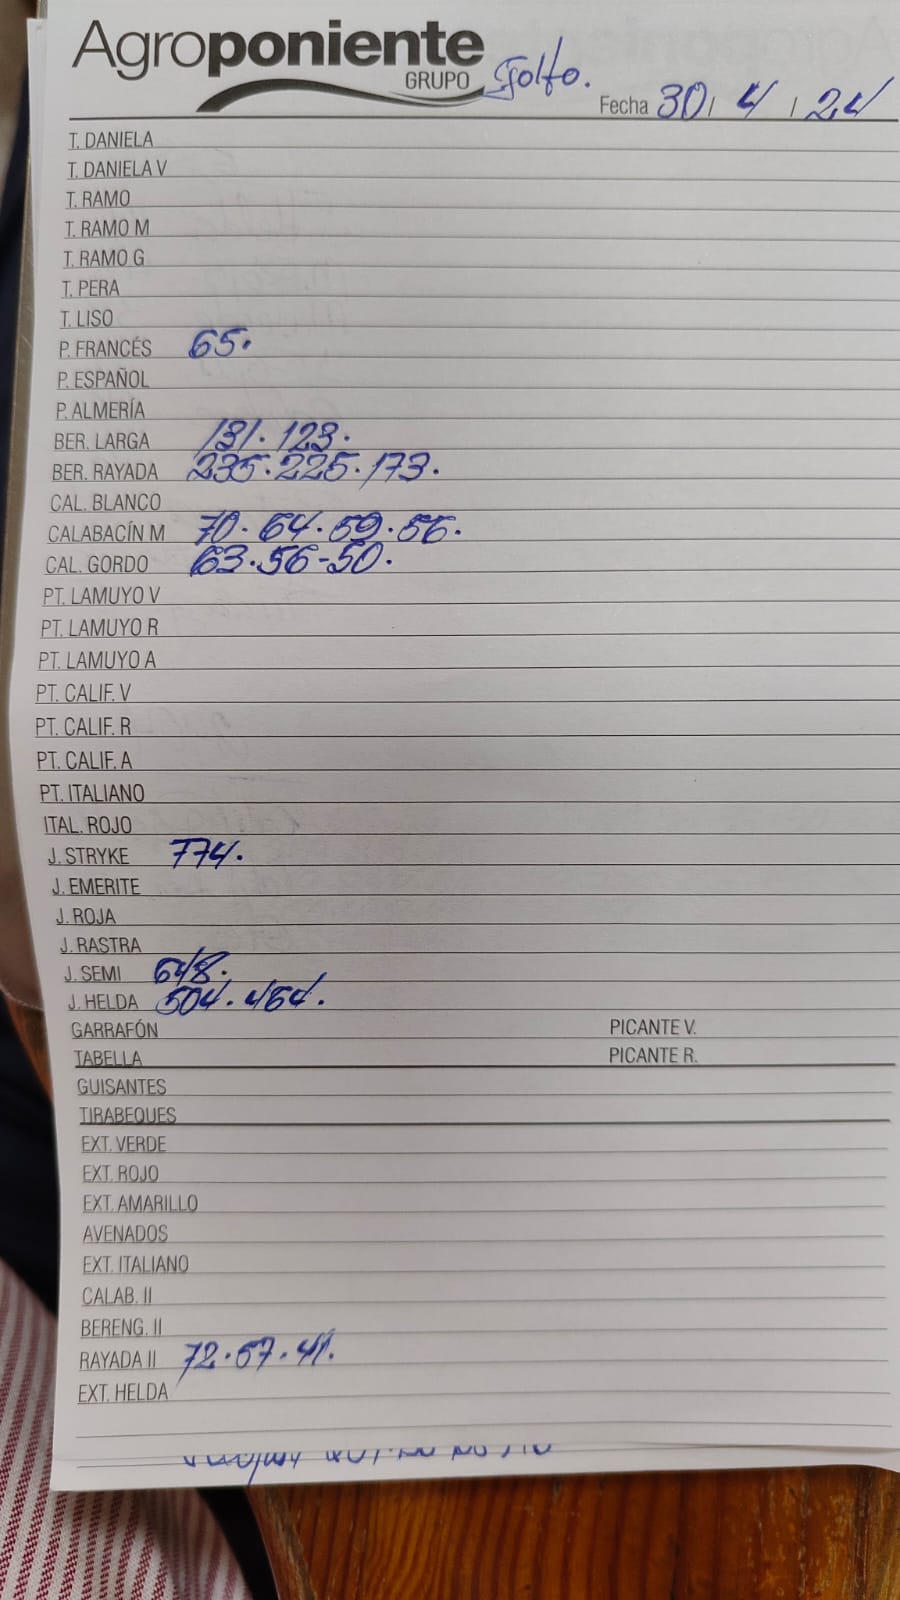 Agroponiente
GRUPO
Golfo.
Fecha 30/ 4 / 24
T. DANIELA
T. DANIELA V
T. RAMO
T. RAMO M
T. RAMO G
T. PERA
T. LISO
P. FRANCÉS 65.
P. ESPAÑOL
P. ALMERÍA
BER. LARGA 131. 123.
BER. RAYADA 235. 225. 173.
CAL. BLANCO
CALABACÍN M 70. 64. 59. 56.
CAL. GORDO 63. 56-50.
PT. LAMUYO V
PT. LAMUYO R
PT. LAMUYO A
PT. CALIF. V
PT. CALIF. R
PT. CALIF. A
PT. ITALIANO
ITAL. ROJO
J. STRYKE 774.
J. EMERITE
J. ROJA
J. RASTRA
J. SEMI 648.
J. HELDA 504. 464.
GARRAFÓN PICANTE V.
TABELLA PICANTE R.
GUISANTES
TIRABEQUES
EXT. VERDE
EXT. ROJO
EXT. AMARILLO
AVENADOS
EXT. ITALIANO
CALAB. II
BERENG. II
RAYADA II 72. 57. 41.
EXT. HELDA